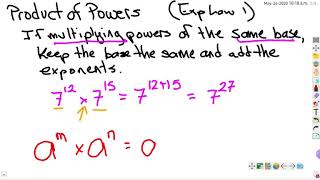 Product of Powers (Exp Law 1)
If multiplying powers of the same base,
Keep the base the same and add the
exponents.
7^12 × 7^15 = 7^(12+15) = 7^27
a^m × a^n = a